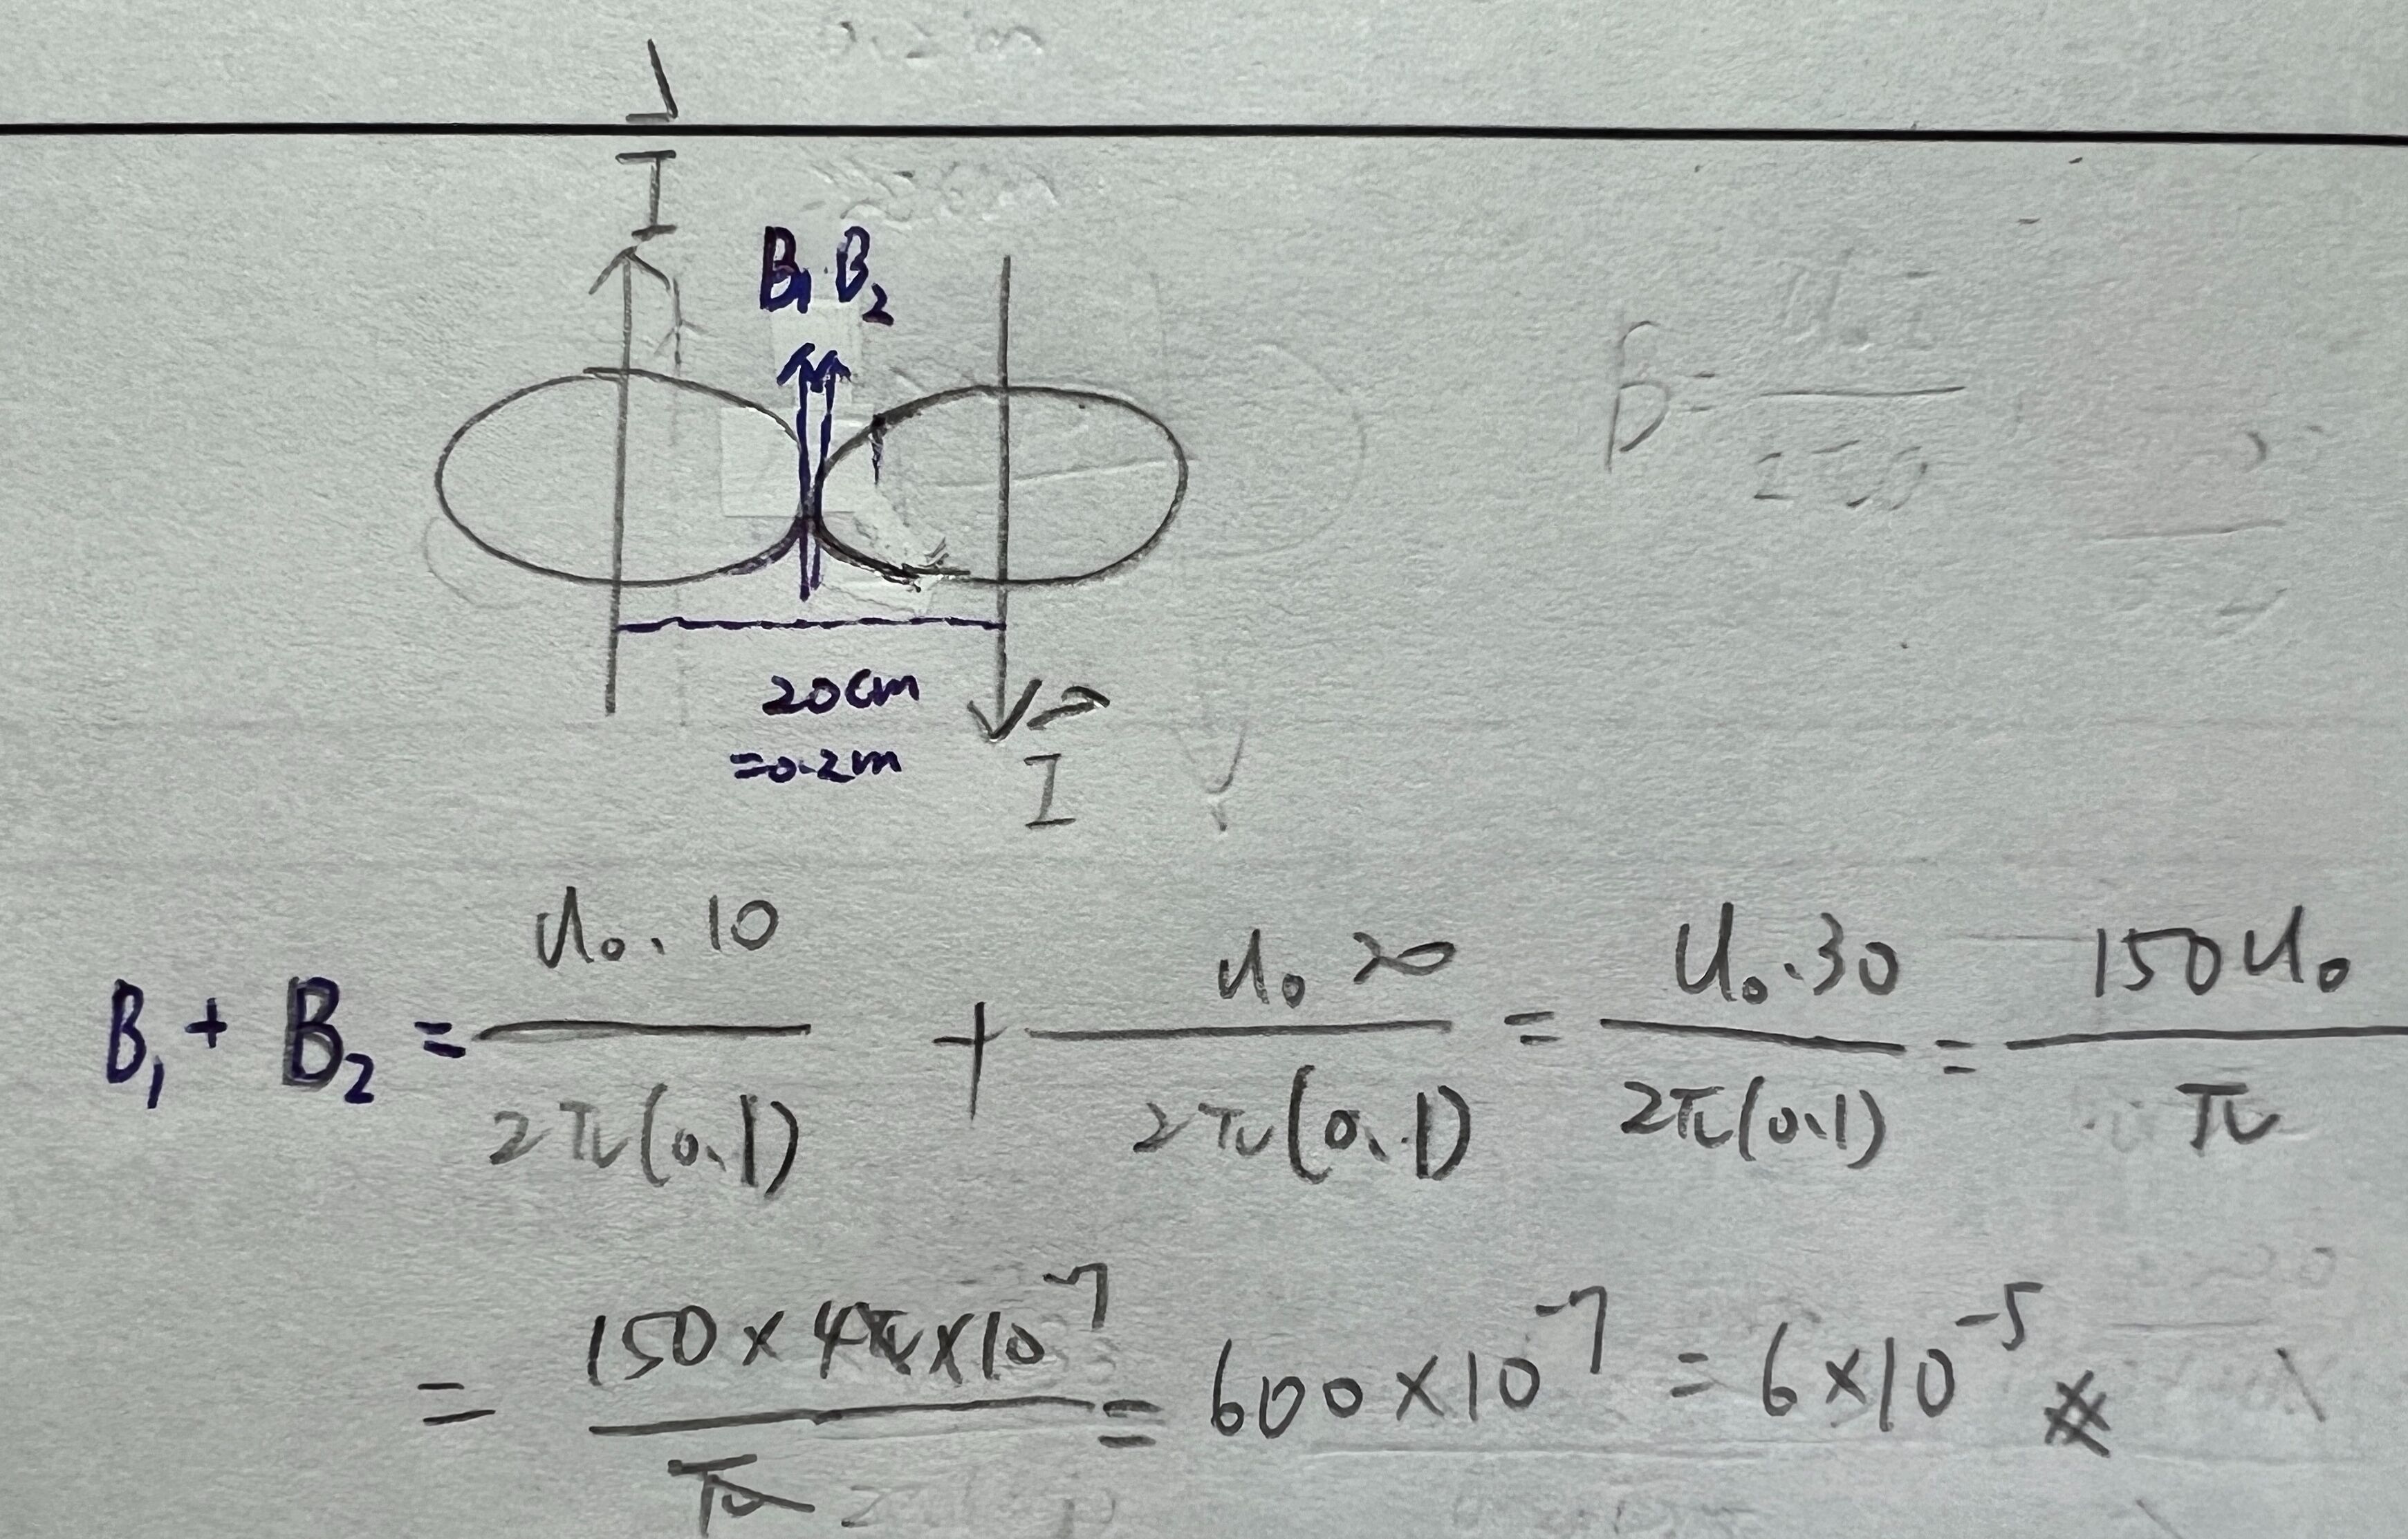 I
B₁ B₂
20cm
=0.2m
I
B₁ + B₂ = \frac{μ₀.10}{2π(0.1)} + \frac{μ₀ 20}{2π(0.1)} = \frac{μ₀.30}{2π(0.1)} = \frac{150μ₀}{π}
= \frac{150×4π×10⁻⁷}{π} = 600×10⁻⁷ = 6×10⁻⁵ ⋕